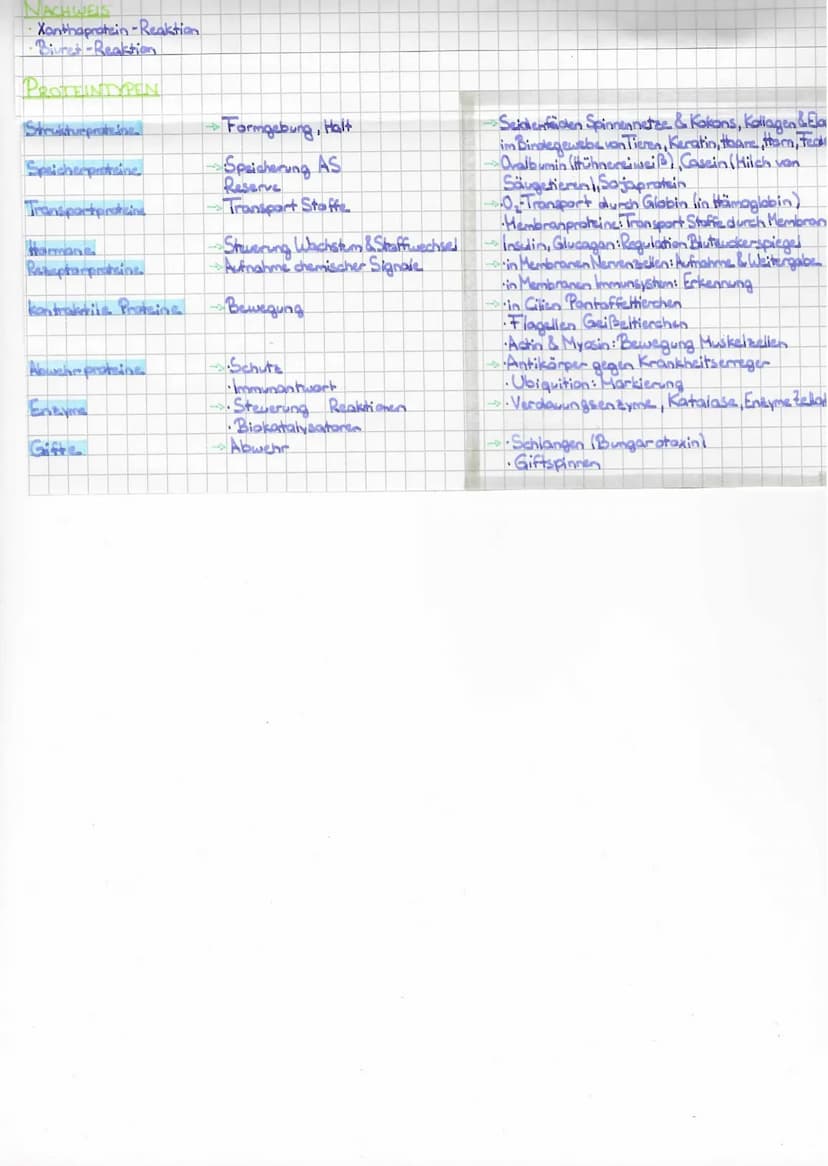 NACHWEIS
· Xanthoprotein-Reaktion
· Biuret-Reaktion
PROTEINTYPEN
Strukturproteine → Formgebung, Halt → Seidenfäden Spinnennetze & Kokons, Kollagen & Ela
im Bindegewebe von Tieren, Keratin, Haare, Horn, Fed
Speicherproteine → Speicherung AS → Ovalbumin (Hühnereiweiß), Casein (Milch von
Reserve Säugetieren), Sojaprotein
Transportproteine → Transport Stoffe → · O₂-Transport durch Globin (in Hämoglobin)
· Membranproteine: Transport Stoffe durch Membran
Hormone → Steuerung Wachstum & Stoffwechsel → Insulin, Glucagon: Regulation Blutzuckerspiegel
Rezeptorproteine → Aufnahme chemischer Signale → · in Membranen Nervenzellen: Aufnahme & Weitergabe
· in Membranen Immunsystem: Erkennung
kontraktile Proteine → Bewegung → · in Cilien Pantoffeltierchen
· Flagellen Geißeltierchen
· Actin & Myosin: Bewegung Muskelzellen
Abwehrproteine → · Schutz → · Antikörper gegen Krankheitserreger
· Immunantwort · Ubiquition: Markierung
Enzyme → · Steuerung Reaktionen → · Verdauungsenzyme, Katalase, Enzyme Zella
· Biokatalysatoren
Gifte → Abwehr → · Schlangen (Bungarotoxin)
· Giftspinnen